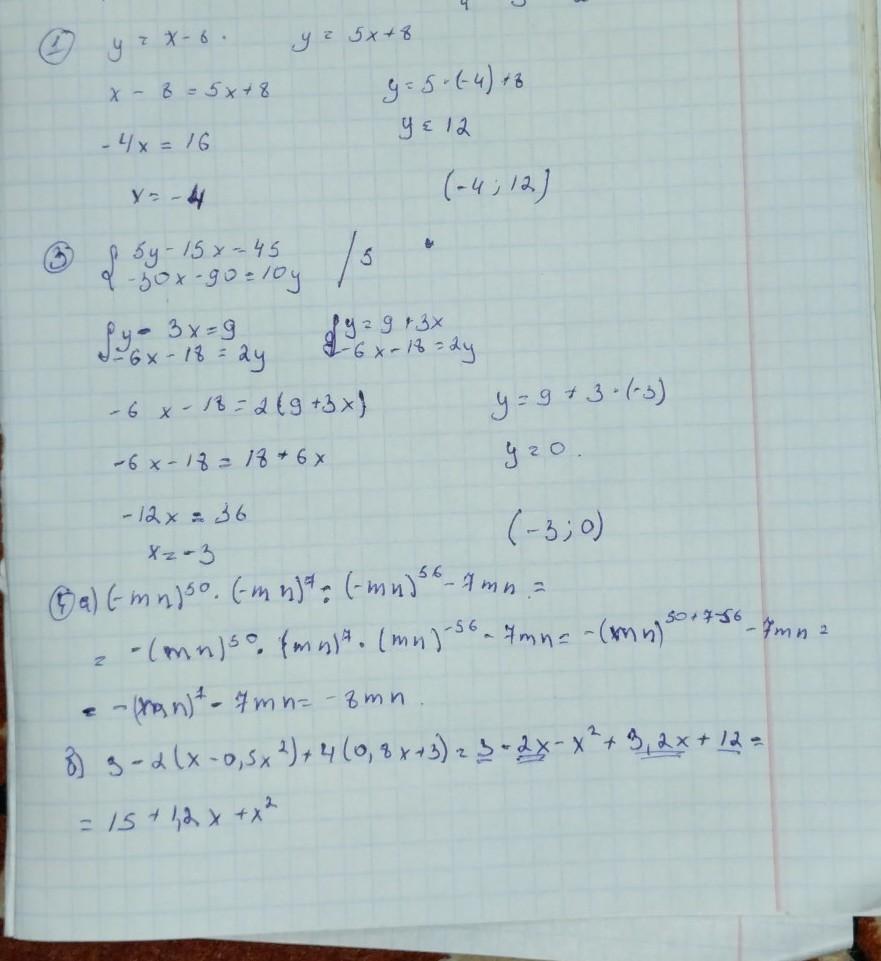 ① y = x - 8. y = 5x + 8
x - 8 = 5x + 8 y = 5 · (-4) + 8
-4x = 16 y = 12
x = -4 (-4; 12)
③ { 5y - 15x = 45 / 5
-30x - 90 = 10y
{ y - 3x = 9 { y = 9 + 3x
-6x - 18 = 2y -6x - 18 = 2y
-6x - 18 = 2(9 + 3x) y = 9 + 3 · (-3)
-6x - 18 = 18 + 6x y = 0.
-12x = 36
x = -3 (-3; 0)
а) (-mn)⁵⁰ · (-mn)⁷ : (-mn)⁵⁶ - 7mn =
= -(mn)⁵⁰ · (mn)⁷ · (mn)⁻⁵⁶ - 7mn = -(mn)⁵⁰⁺⁷⁻⁵⁶ - 7mn =
= -(mn)¹ - 7mn = -8mn.
б) 3 - 2(x - 0,5x²) + 4(0,8x + 3) = 3 - 2x - x² + 3,2x + 12 =
= 15 + 1,2x + x²